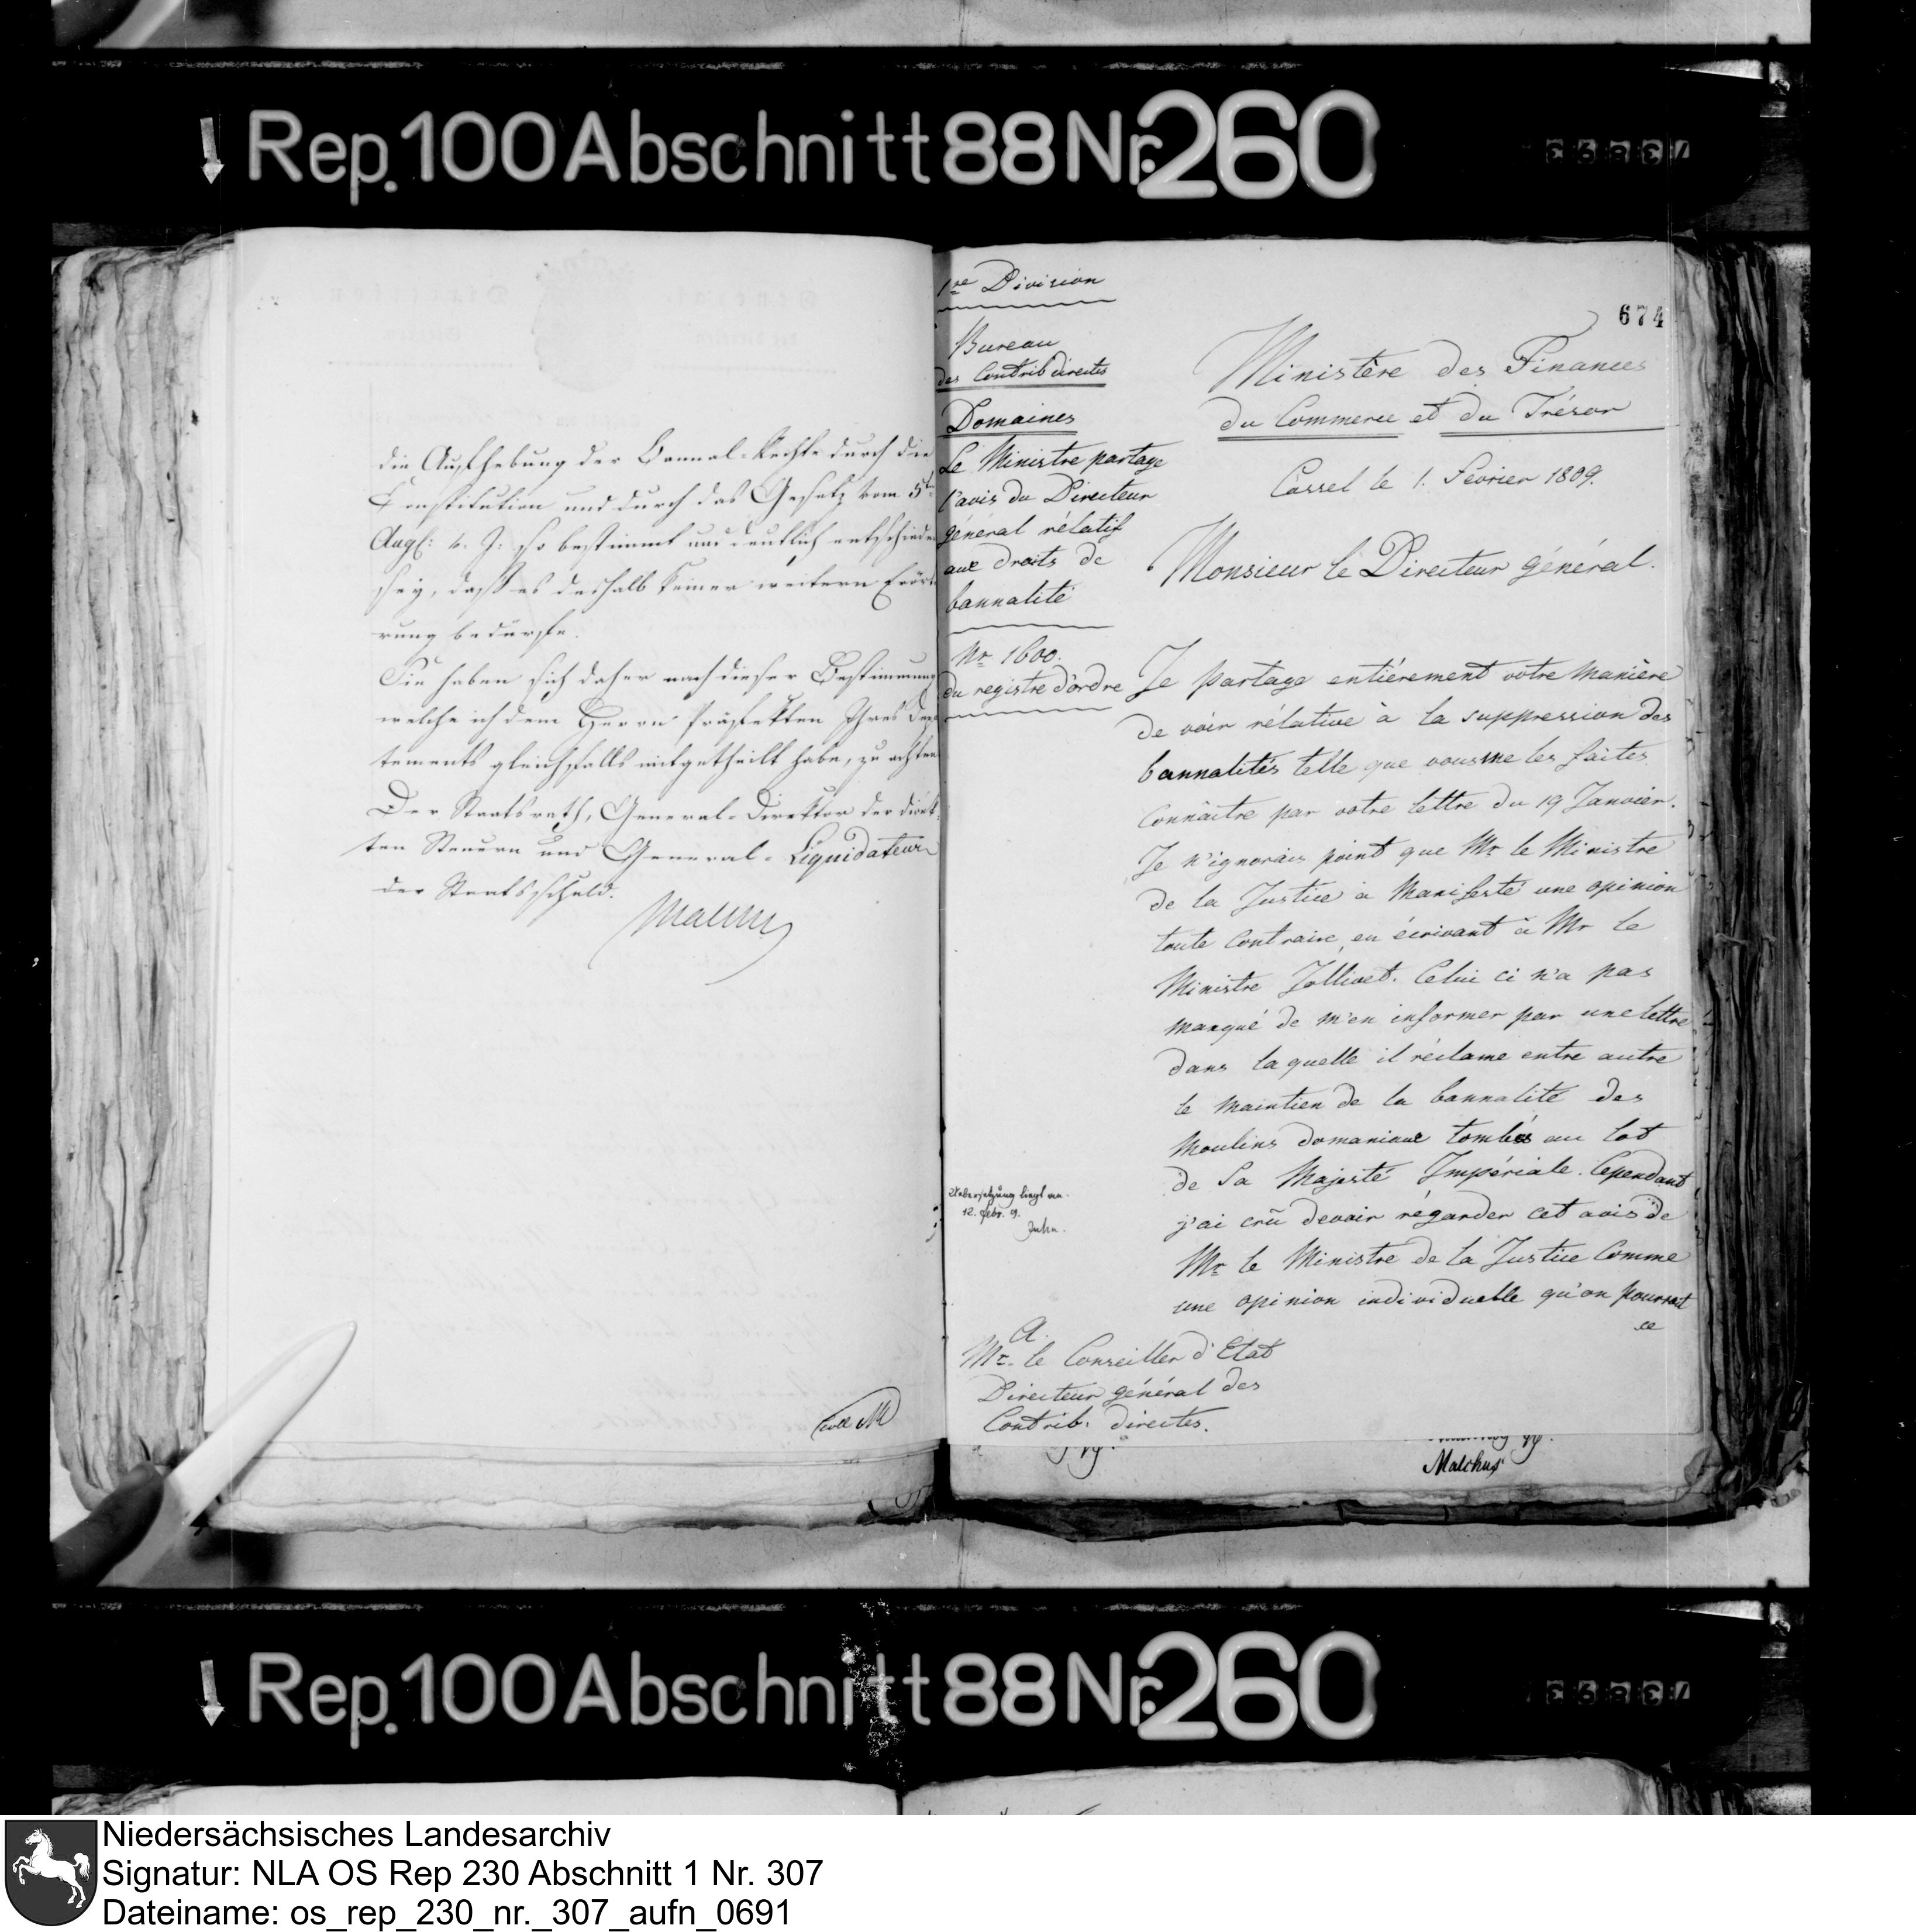 Rep. 100 Abschnitt 88 Nr. 260
die Aufhebung der Bannal-Rechte durch die
Constitution und durch das Gesetz vom 5ten
Aug: v. J: so bestimmt und deutlich entschieden
sey, daß es deshalb keiner weitern Erört
rung bedürfe.
Sie haben sich daher nach dieser Bestimmung
welche ich dem Herrn Präfekten Ihres Dep
tements gleichfalls mitgetheilt habe, zu achten
Der Staatsrath, General-Direktor der direk-
ten Steuern und General-Liquidateur
der Staatsschuld.
coll M
1re Division
Bureau
des Contrib directes
Domaines
Le Ministre partage
l'avis du Directeur
général rélatif
aux droits de
bannalité
Nr. 1600.
du registre d'ordre
Uebersetzung liegt an.
12. febr. 9.
A
Mr. le Conseiller d'Etat
Directeur général des
Contrib: directes.
674
Ministère des Finances
du Commerce et du Trésor
Cassel le 1. Février 1809.
Monsieur le Directeur général.
Je partage entiérement votre manière
de voir rélative à la suppression des
bannalités telle que vous me les faites
connâitre par votre lettre du 19 Janvier.
Je n'ignorais point que Mr le Ministre
de la Justice à manifesté une opinion
toute contraire, en écrivant à Mr le
Ministre Jollivet. Celui ci n'a pas
manqué de m'en informer par une lettre
dans laquelle il réclame entre autre
le maintien de la bannalité des
moulins domaniaux tombés au lot
de Sa Majesté Impériale. Cependant
j'ai crû devoir régarder cet avis de
Mr le Ministre de la Justice comme
une opinion individuelle qu'on pourrait
ce
Malchus
Rep. 100 Abschnitt 88 Nr. 260
Niedersächsisches Landesarchiv
Signatur: NLA OS Rep 230 Abschnitt 1 Nr. 307
Dateiname: os_rep_230_nr._307_aufn_0691